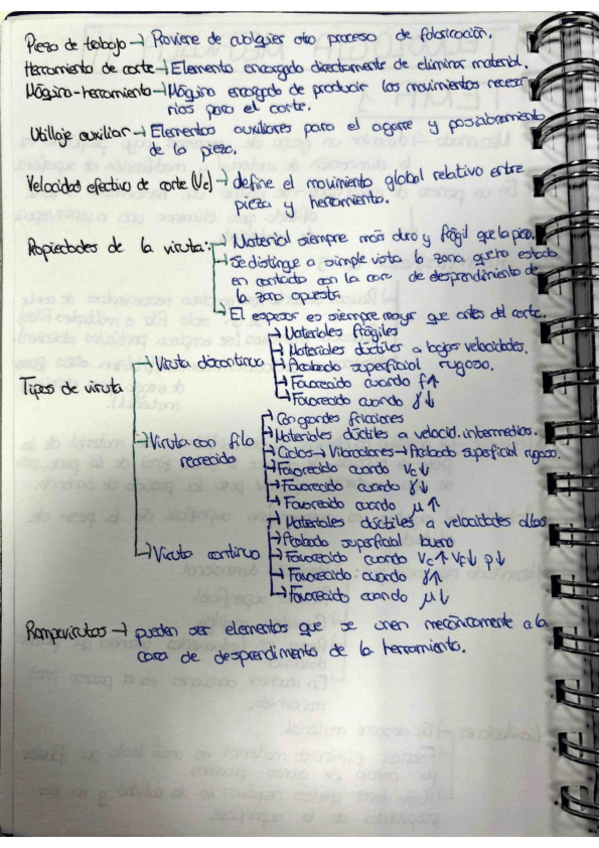 Pieza de trabajo → Proviene de cualquier otro proceso de fabricación.
Herramienta de corte → Elemento encargado directamente de eliminar material.
Máquina-herramienta → Máquina encargada de producir los movimientos necesa-
rios para el corte.
Utillaje auxiliar → Elementos auxiliares para el agarre y posicionamiento
de la pieza.
Velocidad efectiva de corte (Vc) → define el movimiento global relativo entre
pieza y herramienta.
Propiedades de la viruta: → Material siempre más duro y frágil que la pieza.
→ Se distingue a simple vista la zona que ha estado
en contacto con la cara de desprendimiento de
la zona opuesta.
→ El espesor es siempre mayor que antes del corte.
Tipos de viruta
→ Viruta discontinua
→ Materiales frágiles
→ Materiales dúctiles a bajas velocidades.
→ Acabado superficial rugoso.
→ Favorecido cuando f↑
→ Favorecido cuando γ↓
→ Viruta con filo
recrecido
→ Con grandes fricciones
→ Materiales dúctiles a velocid. intermedias.
→ Ciclos → Vibraciones → Acabado superficial rugoso.
→ Favorecido cuando Vc↓
→ Favorecido cuando γ↓
→ Favorecido cuando μ↑
→ Viruta continua
→ Materiales dúctiles a velocidades altas
→ Acabado superficial bueno
→ Favorecido cuando Vc↑ Vf↓ p↓
→ Favorecido cuando γ↑
→ Favorecido cuando μ↓
Rompevirutas → pueden ser elementos que se unen mecánicamente a la
cara de desprendimento de la herramienta.